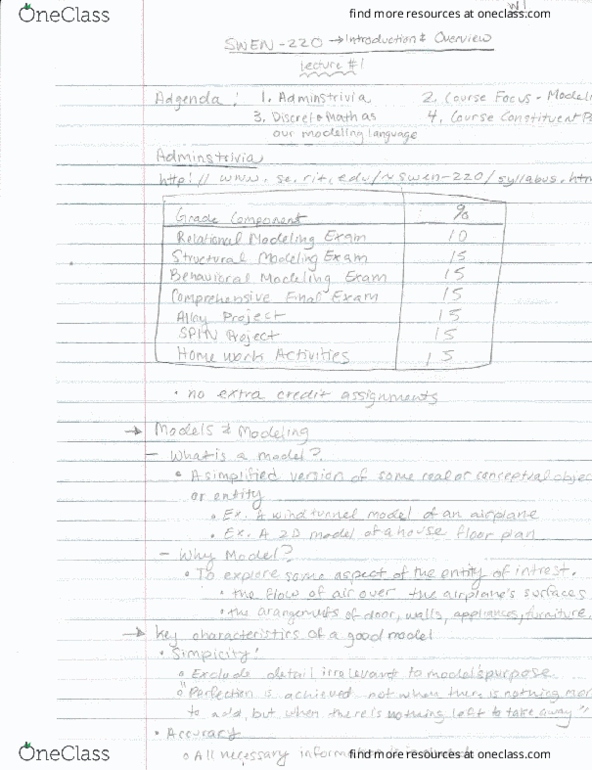 OneClass
find more resources at oneclass.com
SWEN-220 → Introduction & Overview
Lecture #1
Adgenda: 1. Adminstrivia 2. Course Focus - Modeli
3. Discrete Math as 4. Course Constituent P
our modeling language
Adminstrivia
http://www.se.rit.edu/~swen-220/syllabus.htm
Grade Component %
Relational Modeling Exam 10
Structural Modeling Exam 15
Behavioral Modeling Exam 15
Comprehensive Final Exam 15
Alloy Project 15
SPIN Project 15
Home Work Activities 15
• no extra credit assignments
→ Models & Modeling
– What is a model?
• A simplified version of some real or conceptual objec
or entity
• Ex. A wind tunnel model of an airplane
• Ex. A 2D model of a house floor plan
– Why Model?
• To explore some aspect of the entity of intrest.
• the flow of air over the airplane's surfaces
• the arangements of door, walls, appliances, furniture.
→ Key characteristics of a good model
• Simpicity:
• Exclude detail irrelevant to model's purpose
• "Perfection is achieved not when there is nothing mor
to add, but when there is nothing left to take away"
• Accuracy
• All necessary
OneClass
find more resources at oneclass.com